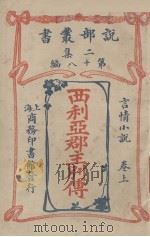 說部叢書
第二集十八編
言情小說 卷上
西利亞郡主別傳
上海商務印書館發行